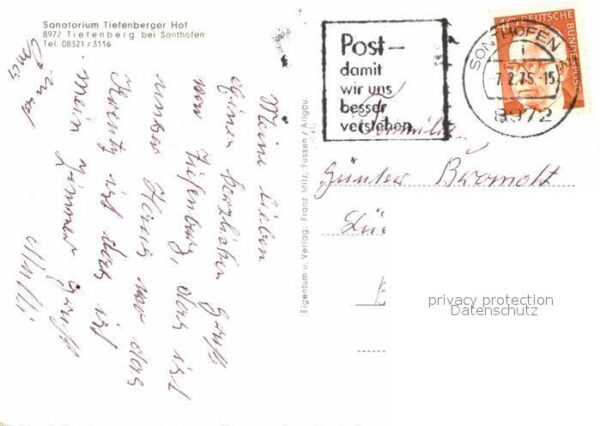 Sanatorium Tiefenberger Hof
8972 Tiefenberg bei Sonthofen
Tel. 08321/3116
Meine lieben
einen herzlichen Gruß
von Tiefenberg, das ist
unser Haus wo das
Kreuz ist das ist
mein Zimmer
Eigentum u. Verlag: Franz Milz, Füssen / Allgäu
Post –
damit
wir uns
besser
verstehen
SONTHOFEN
7.2.75-15
8972
DEUTSCHE BUNDESPOST
Familie
Günter
privacy protection
Datenschutz